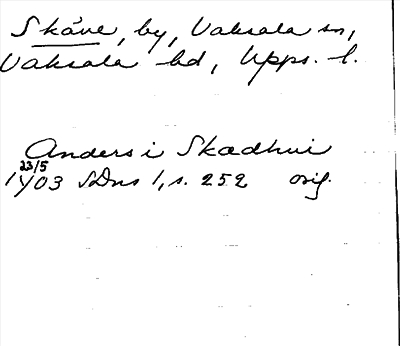 Skäve, by, Vaksala sn,
Vaksala hd, Upps. l.
Anders i Skadhui
23/5
1403 SDns 1, s. 252 orig.